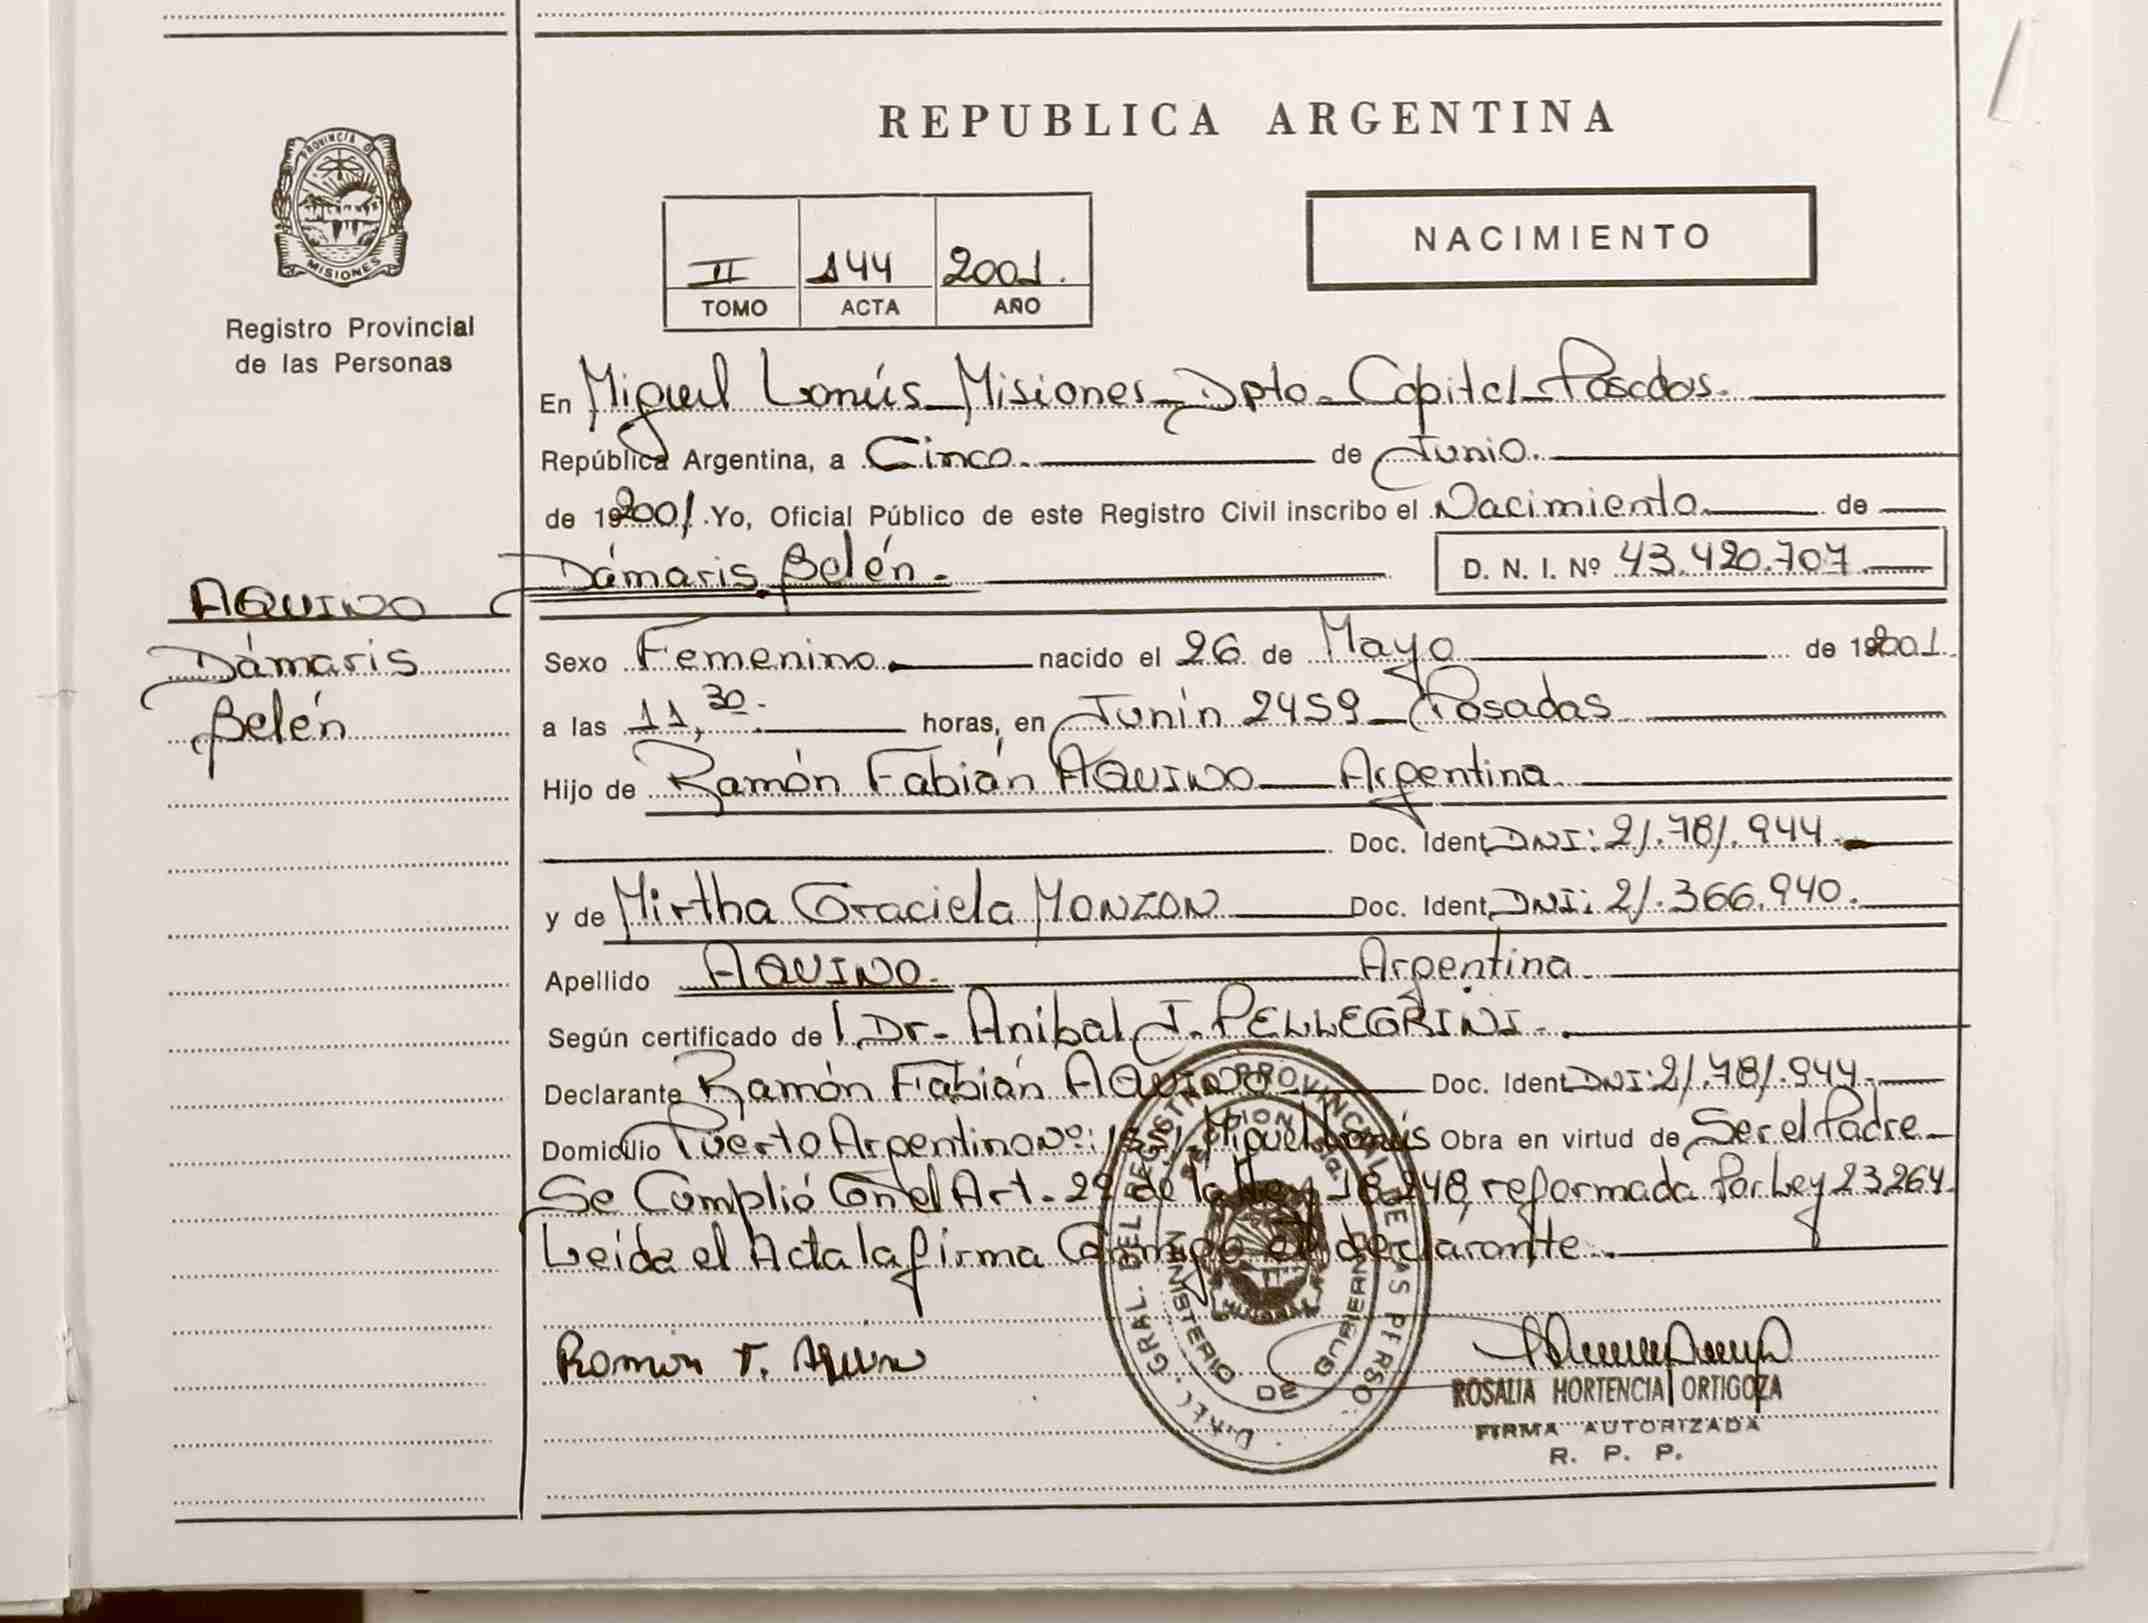 REPUBLICA ARGENTINA
PROVINCIA D
MISIONES
Registro Provincial
de las Personas
II 144 2001.
TOMO ACTA AÑO
NACIMIENTO
En Miguel Lanús - Misiones - Dpto - Capital - Posadas.
República Argentina, a Cinco. de Junio.
de 192001. Yo, Oficial Público de este Registro Civil inscribo el Nacimiento de
Dámaris Belén. D. N. I. Nº 43.420.707
AQUINO
Dámaris
Belén
Sexo Femenino. nacido el 26 de Mayo de 192001.
a las 11,30. horas, en Junín 2459 - Posadas
Hijo de Ramón Fabián AQUINO Argentina
Doc. Ident. DNI: 21.781.944.
y de Mirtha Graciela MONZON Doc. Ident. DNI: 21.366.940.
Apellido AQUINO. Argentina
Según certificado de l Dr. Aníbal J. PELLEGRINI.
Declarante Ramón Fabián AQUINO Doc. Ident. DNI: 21.781.944.
Domicilio Puerto Argentino Nº: Miguel Lanús Obra en virtud de Ser el Padre
Se Cumplió Con el Art. 29 de la Ley 18.248, reformada Por Ley 23.264
Leída el Acta la firma Conmigo el declarante.
Ramón F. Aquino
DIREC. GRAL. DEL REGISTRO PROVINCIAL DE LAS PERSO
MINISTERIO DE GOBIERN
ROSALIA HORTENCIA ORTIGOZA
FIRMA AUTORIZADA
R. P. P.